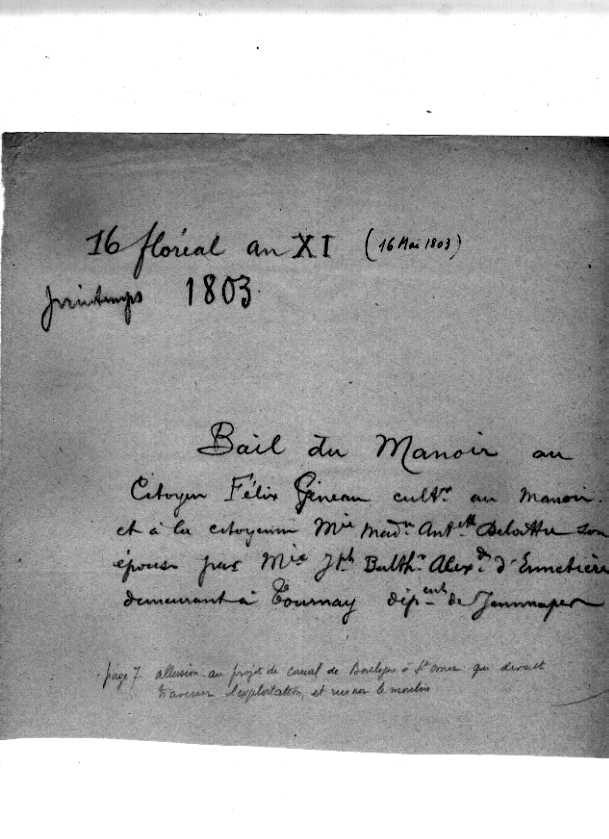 16 floréal an XI (16 Mai 1803)
printemps 1803.
Bail du Manoir au
Citoyen Félix Gineau cultr. au manoir.
et à la citoyenne Mie Madne Antette Delattre son
épouse par Mie Jph Balthr Alexdre d'Ennetières
demeurant à Tournay dépent de Jemmapes
page 7 allusion au projet de canal de Boulogne à St Omer qui devait
traverser l'exploitation, et ruiner le moulin